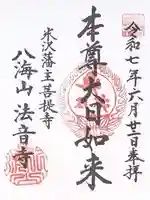 令和七年六月廿一日奉拝
本尊大日如来
米沢藩主菩提寺
八海山 法音寺